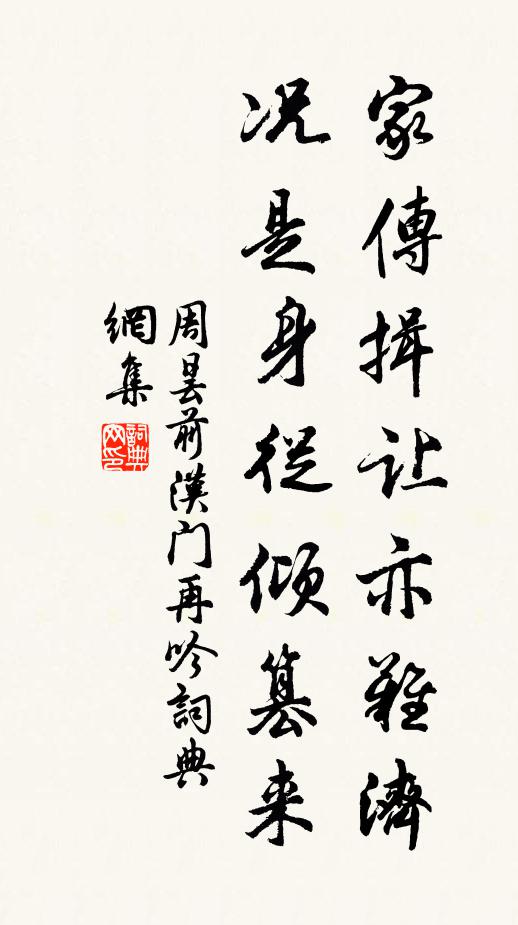 家傳揖让亦難濟
况是身從傾篡来
周曇前漢門再吟詞典
網集
詞典網印